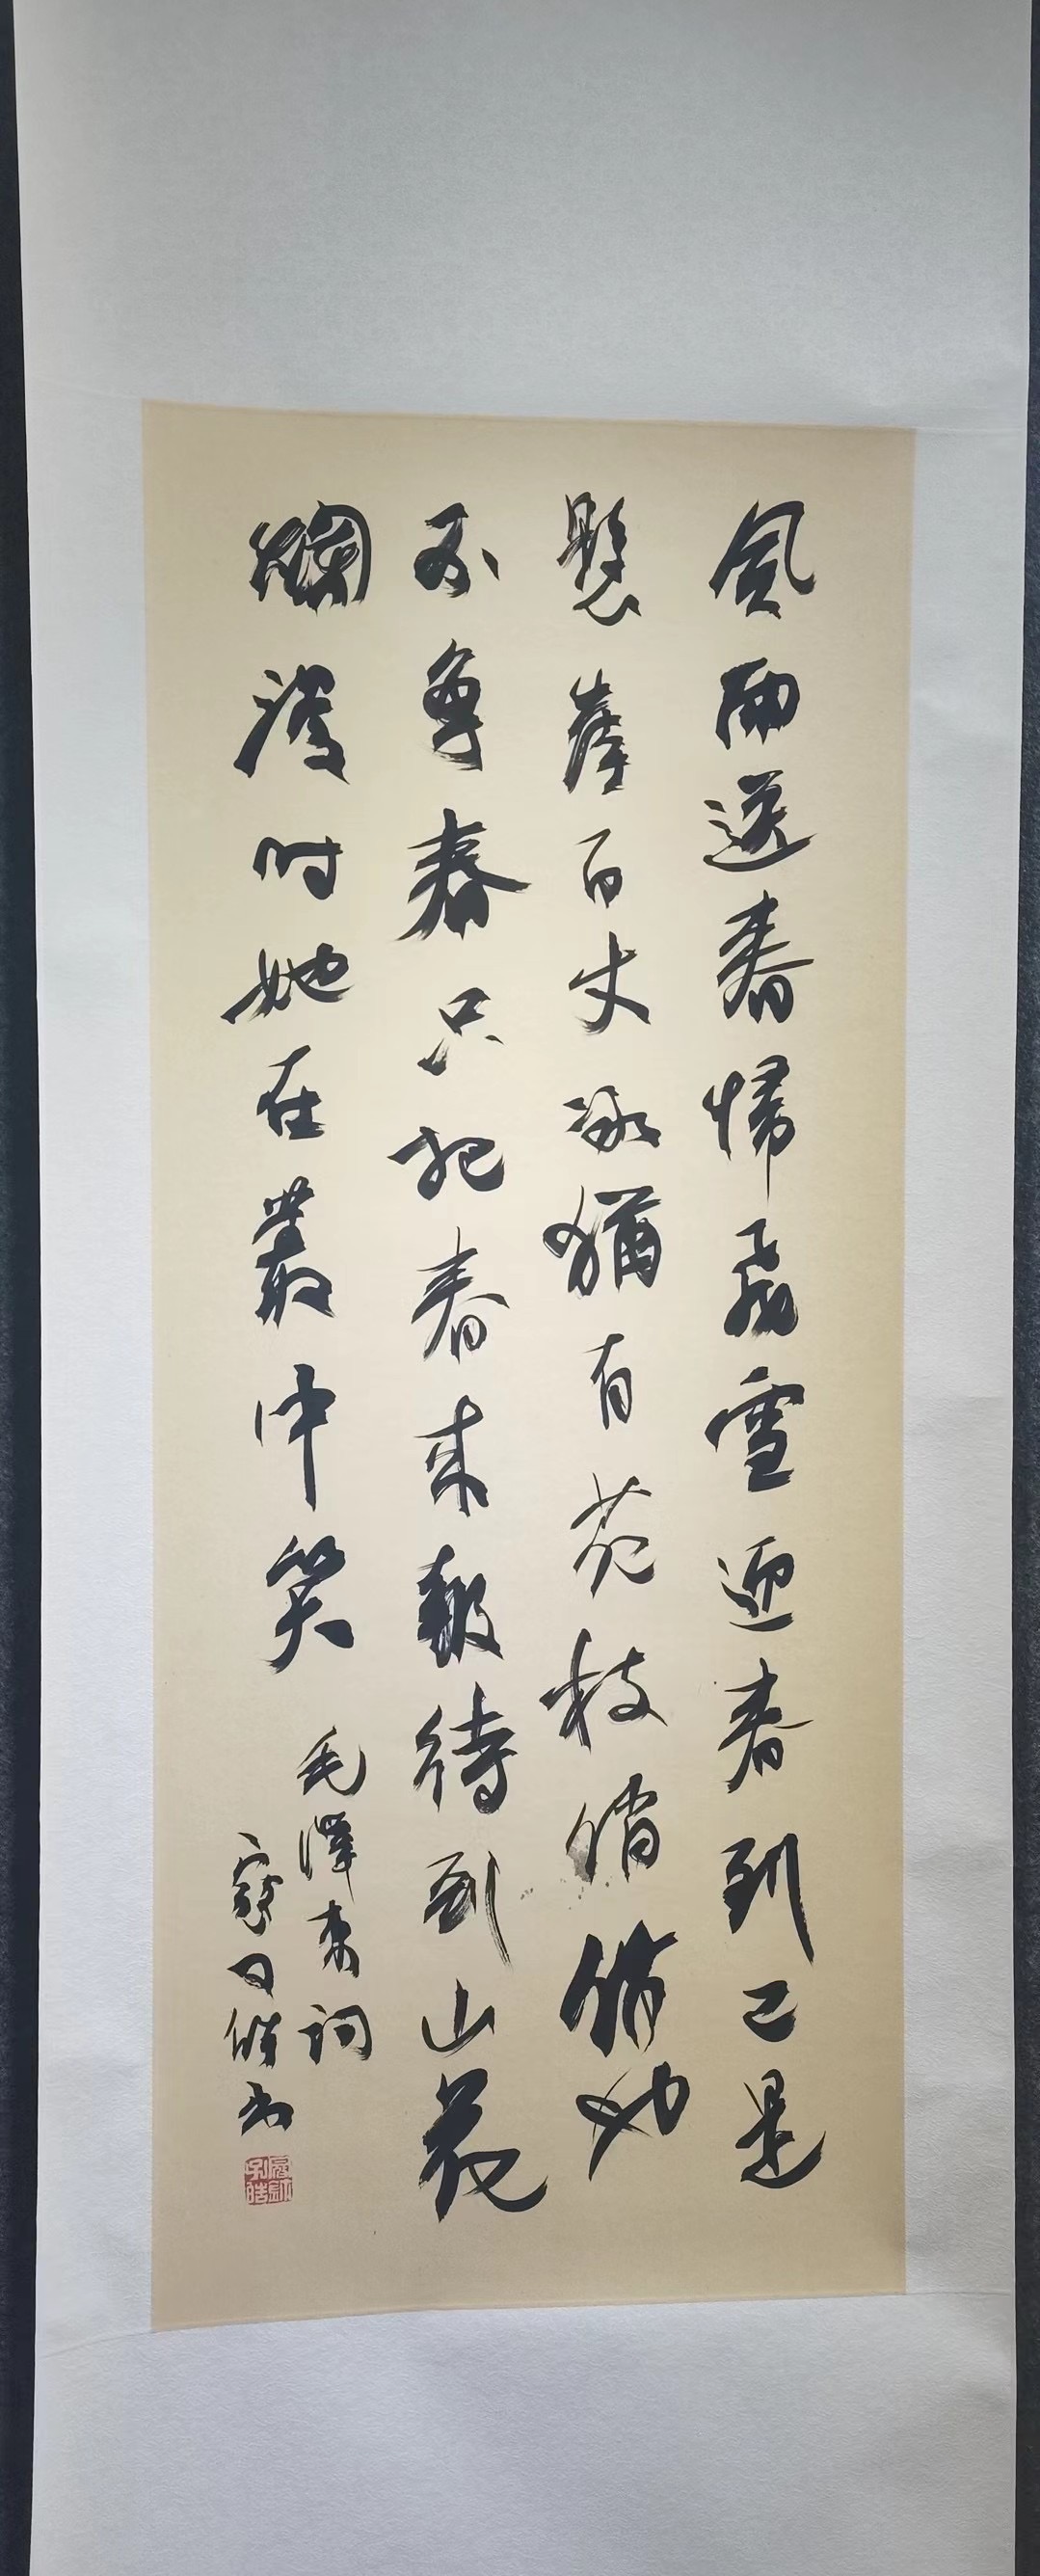 風雨送春歸飛雪迎春到已是
懸崖百丈冰猶有花枝俏俏也
不争春只把春來報待到山花
爛漫時她在叢中笑
毛澤東詞
書